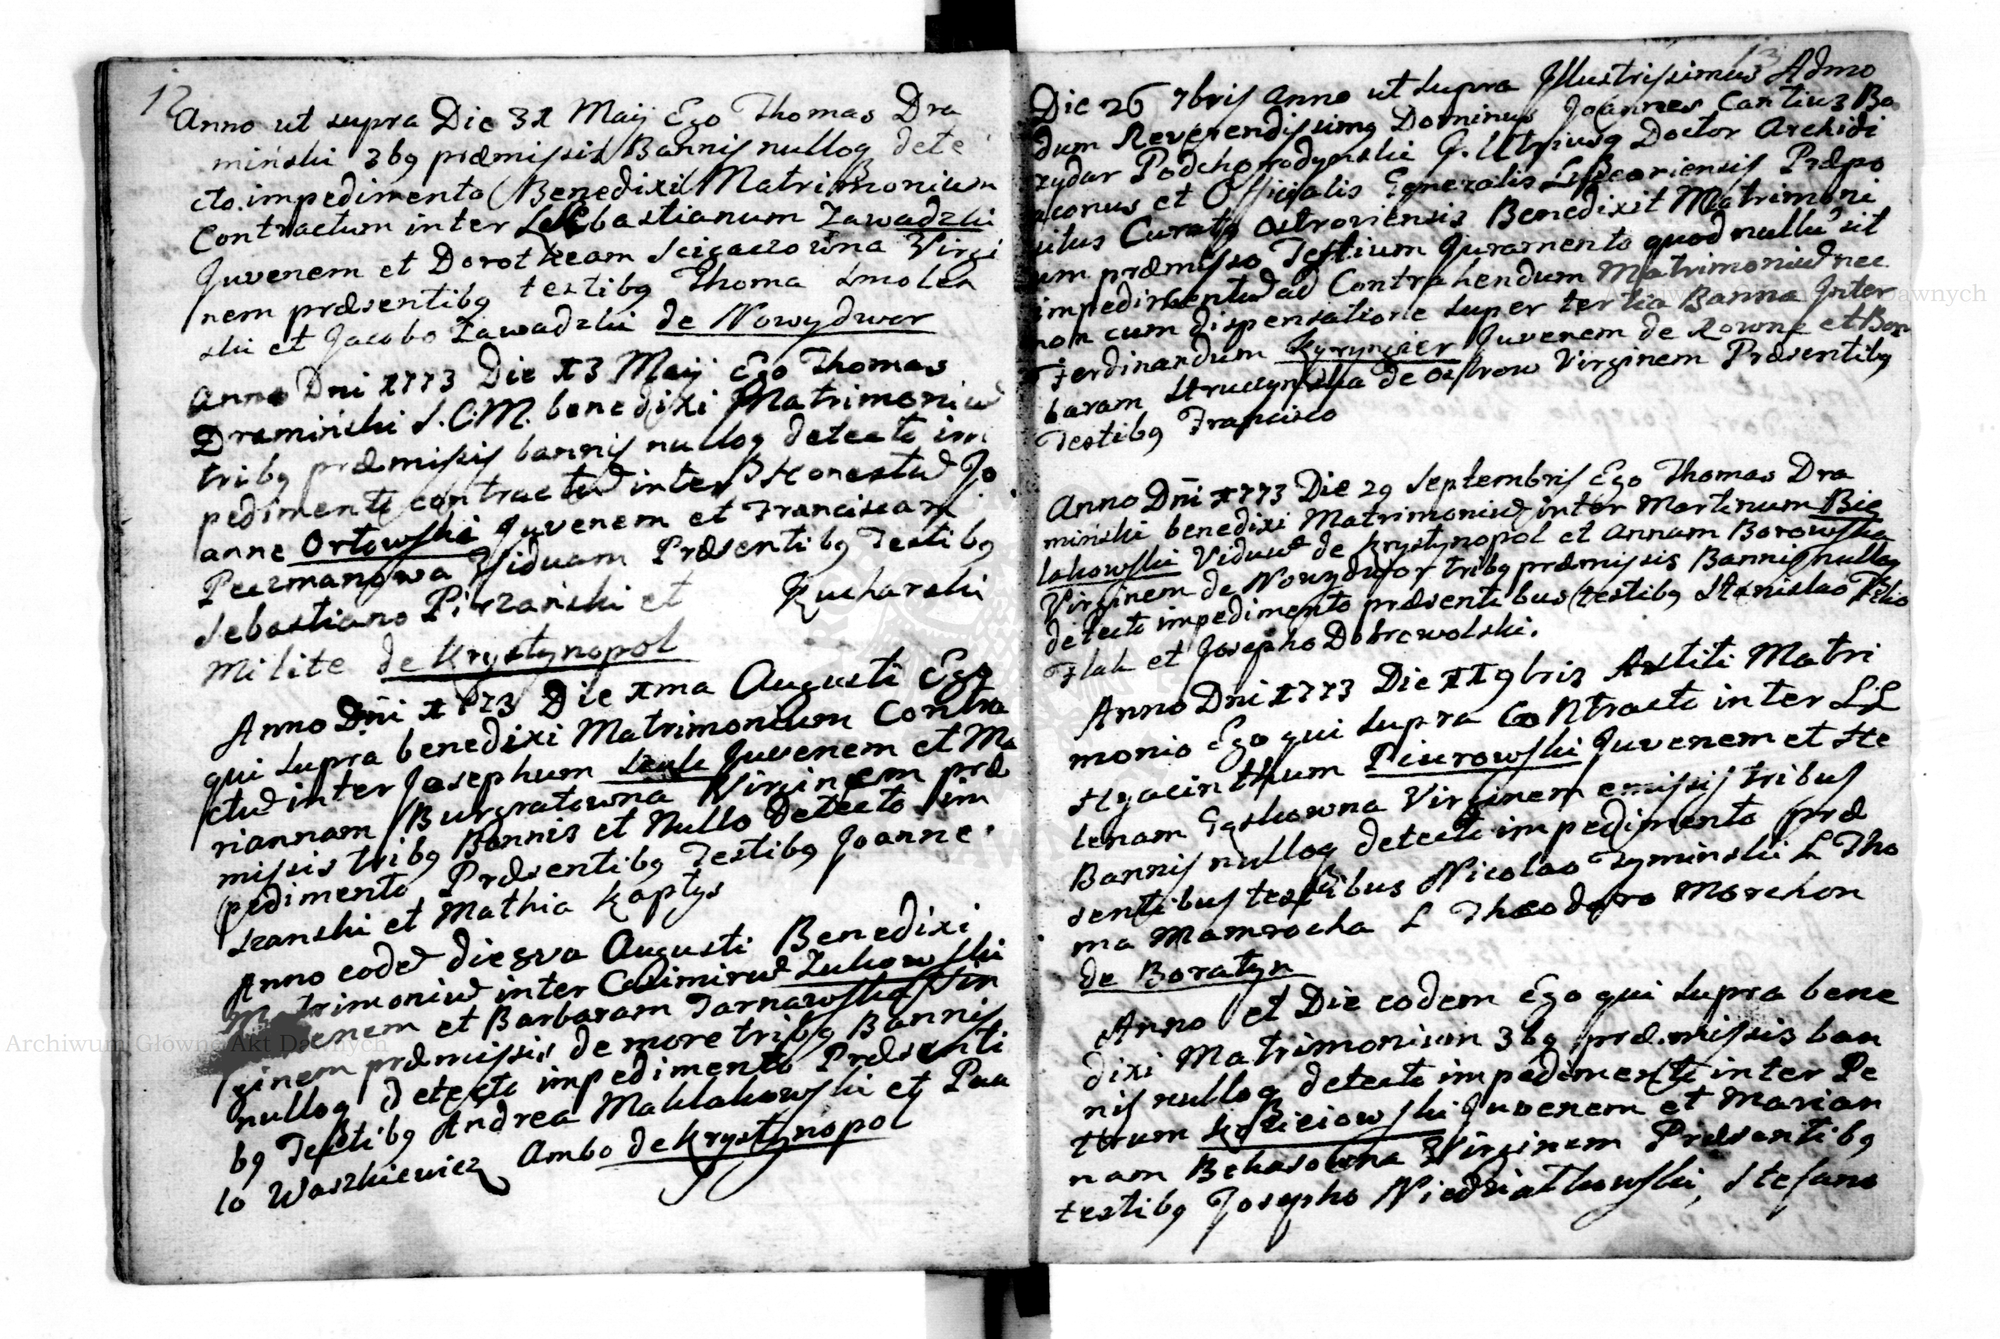 12
Anno ut supra Die 31 Maij Ego Thomas Dra
miński 3bg præmissis Bannis nullog dete
cto impedimento Benedixi Matrimonium
Contractum inter Sebastianum Zawadzki
Juvenem et Dorotheam Scigaczowna Virgi
nem præsentibg testibg Thoma Smolen
ski et Jacobo Zawadzki de Nowydwor
Anno Dni 1773 Die 13 Maij Ego Thomas
Dramiński S.C.M. benedixi Matrimoniu
tribg præmissis bannis nullog detecto im
pedimento contractu inter Honestu Jo
anne Orłowski Juvenem et Franciscam
Peczmanowa Viduam Præsentibg Testibg
Sebastiano Pirzański et Kucharski
Milite de Krystynopol
Anno Dni 1773 Die 1ma Augusti Ego
qui supra benedixi Matrimonium Contra
ctu inter Josephum Szulc Juvenem et Ma
riannam Burgratowna Virginem præ
missis tribg Bannis et Nullo detecto im
pedimento Præsentibg Testibg Joanne
Szanski et Mathia Kaptys
Anno eode die 8va Augusti Benedixi
Matrimoniu inter Casimiru Zukowski
enem et Barbaram Tarnawska Vir
ginem præmissis de more tribg Bannis
nullog detecto impedimento Præsenti
bg Testibg Andrea Maklakowski et Pau
lo Waszkiewicz Ambo de Krystynopol
13
Die 26 7bris Anno ut supra Illustrissimus Admo
dum Reverendissimg Dominus Joannes Cantius Bo
zydar Podhorodynski J. Utriusq Doctor Archidi
aconus et Officialis Generalis Præpo
situs Curatg Ostroviensis Benedixit Matrimoni
um præmisso Testium Juramento quod nullu sit
impedimentu ad Contrahendum Matrimoniu nec
non cum dispensatione super tertia Banna Inter
Ferdinandum Juvenem de Rowne et Bar
baram Struczynska de Ostrow Virginem Præsentibg
Testibg Francisco
Anno Dni 1773 Die 29 Septembris Ego Thomas Dra
miński benedixi Matrimoniu inter Martinum Bie
lakowski Viduu de Krystynopol et Annam Borowska
Virginem de Nowydwor tribg præmissis Bannis nullog
detecto impedimento præsentibus testibg Stanislao
Flak et Josepho Dobrowolski.
Anno Dni 1773 Die 11 9bris Astiti Matri
monio Ego qui supra Contracto inter LL
Hyacinthum Piurowski Juvenem et He
lenam Virginem emissis tribus
Bannis nullog detecto impedimento præ
sentibus testibus Nicolao Zyminski L Tho
ma Mamrocha L Theodoro Morchon
de Boratyn
Anno et Die eodem Ego qui supra bene
dixi Matrimonium 3bg præmissis ban
nis nullog detecto impedimento inter Pe
trum Koziciowski Juvenem et Marian
nam Bekasowna Virginem Præsentibg
testibg Josepho Niedzwiatkowski, Stefano
Archiwum Główne Akt Dawnych